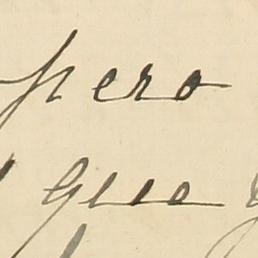 pero
que